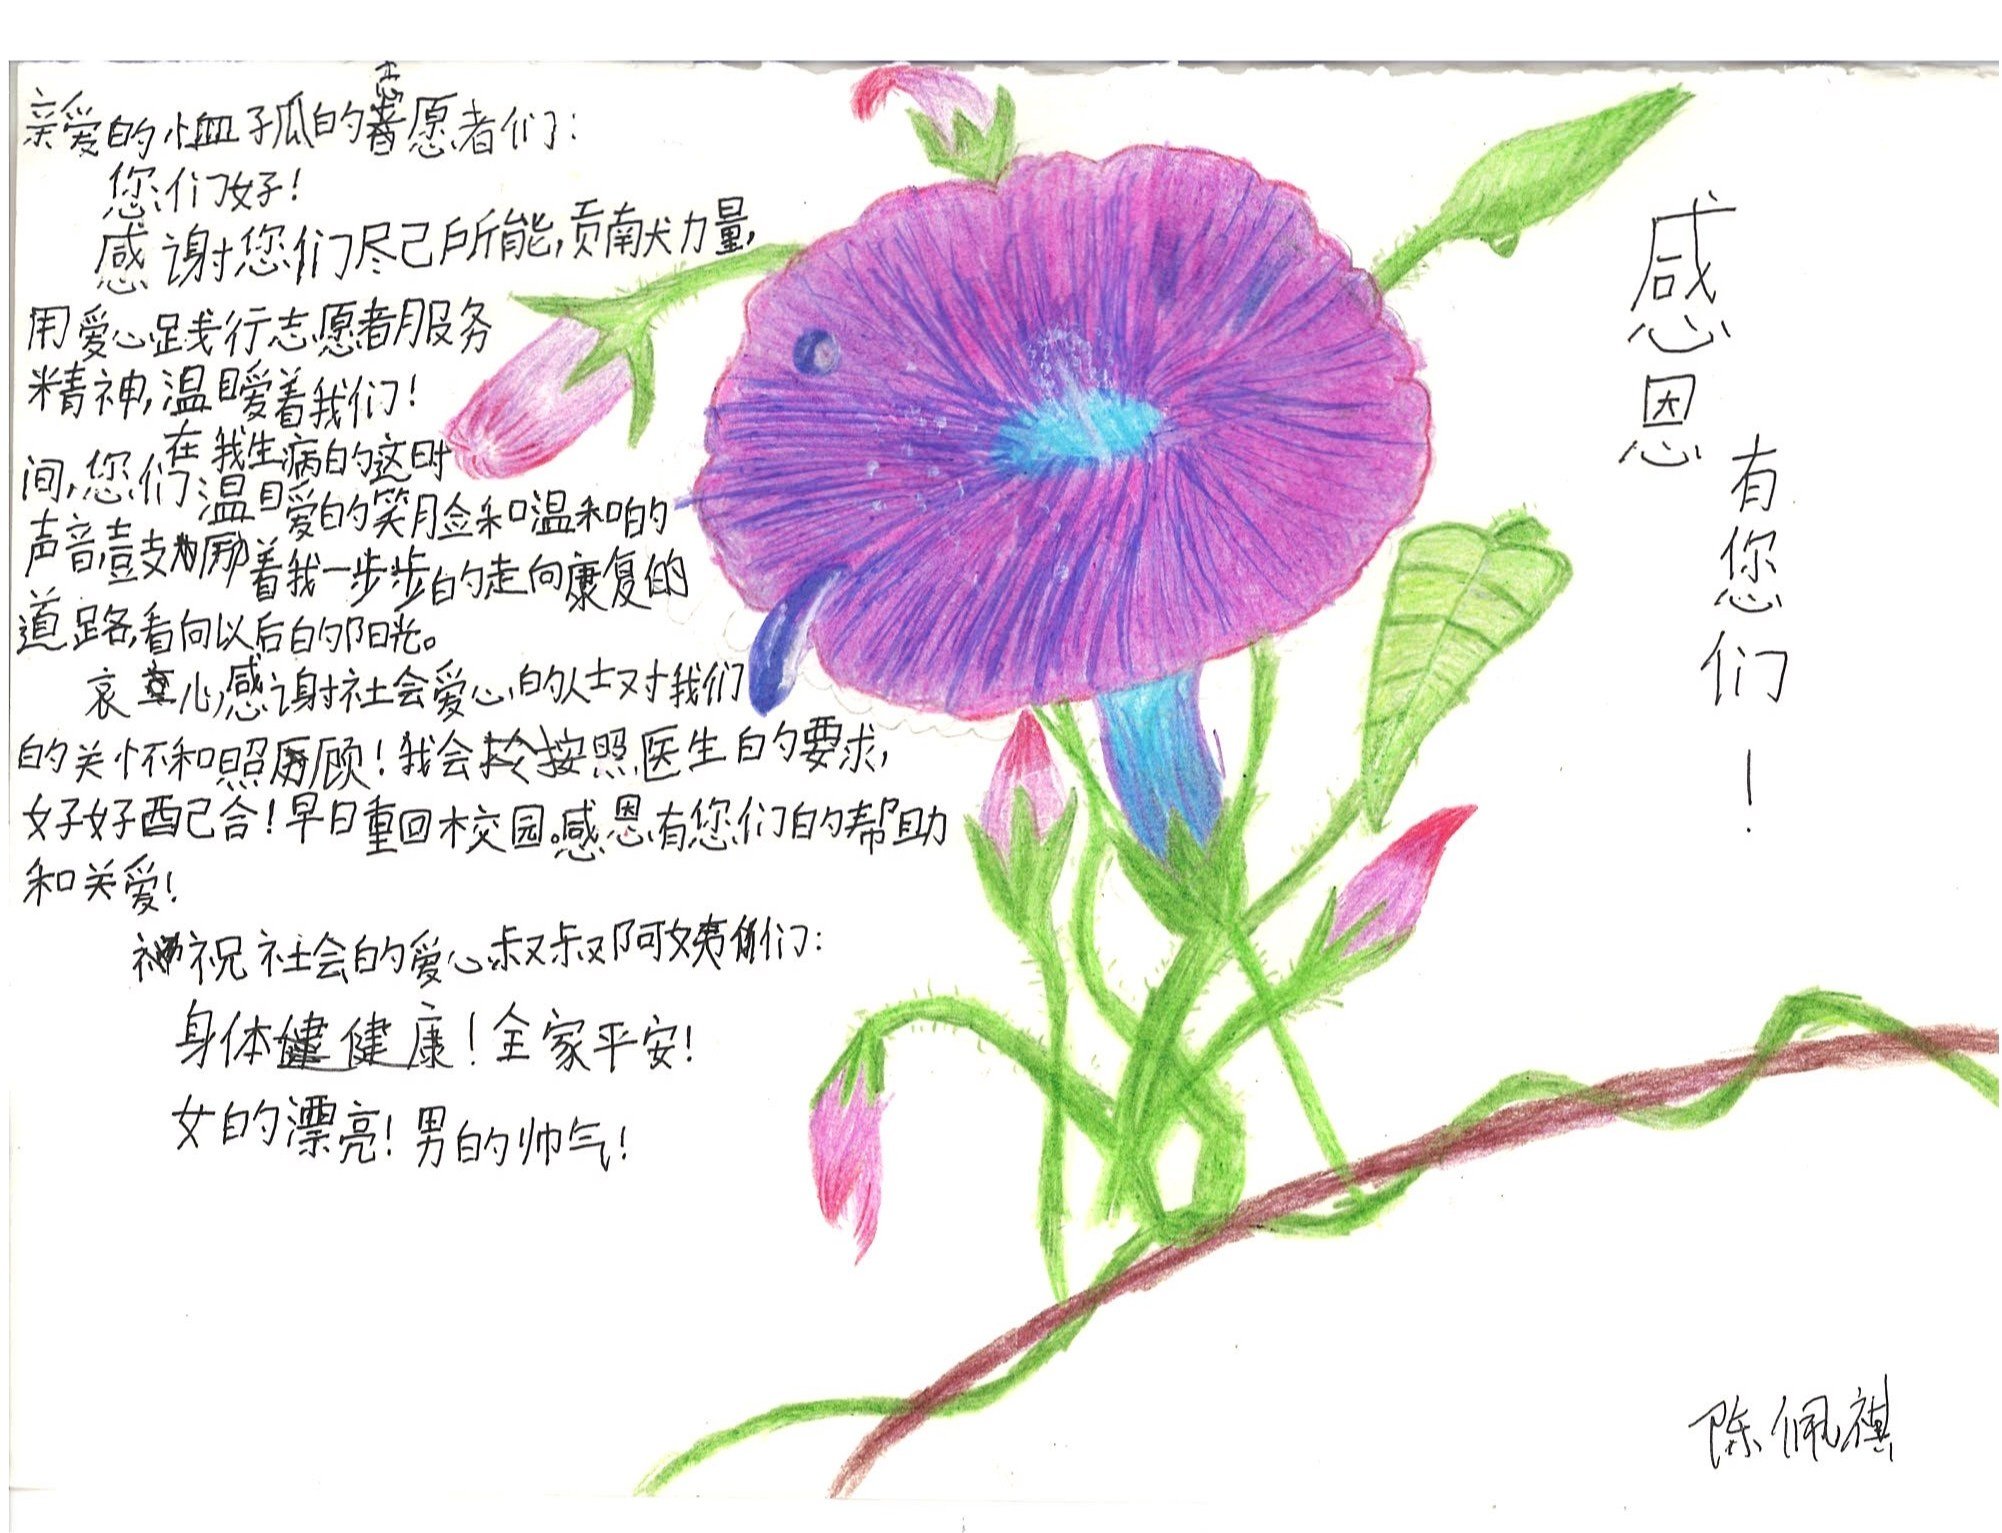 亲爱的恤孤的志愿者们：
您们好！
感谢您们尽己所能，贡献力量，
用爱心践行志愿者服务
精神，温暖着我们！
在我生病的这时
间，您们温暖的笑脸和温和的
声音，鼓励着我一步步的走向康复的
道路，看向以后的阳光。
衷心感谢社会爱心的人士对我们
的关怀和照顾！我会按照医生的要求，
好好配合！早日重回校园。感恩有您们的帮助
和关爱！
祝社会的爱心叔叔阿姨们：
身体健康！全家平安！
女的漂亮！男的帅气！
感恩
有您们！
陈佩祺